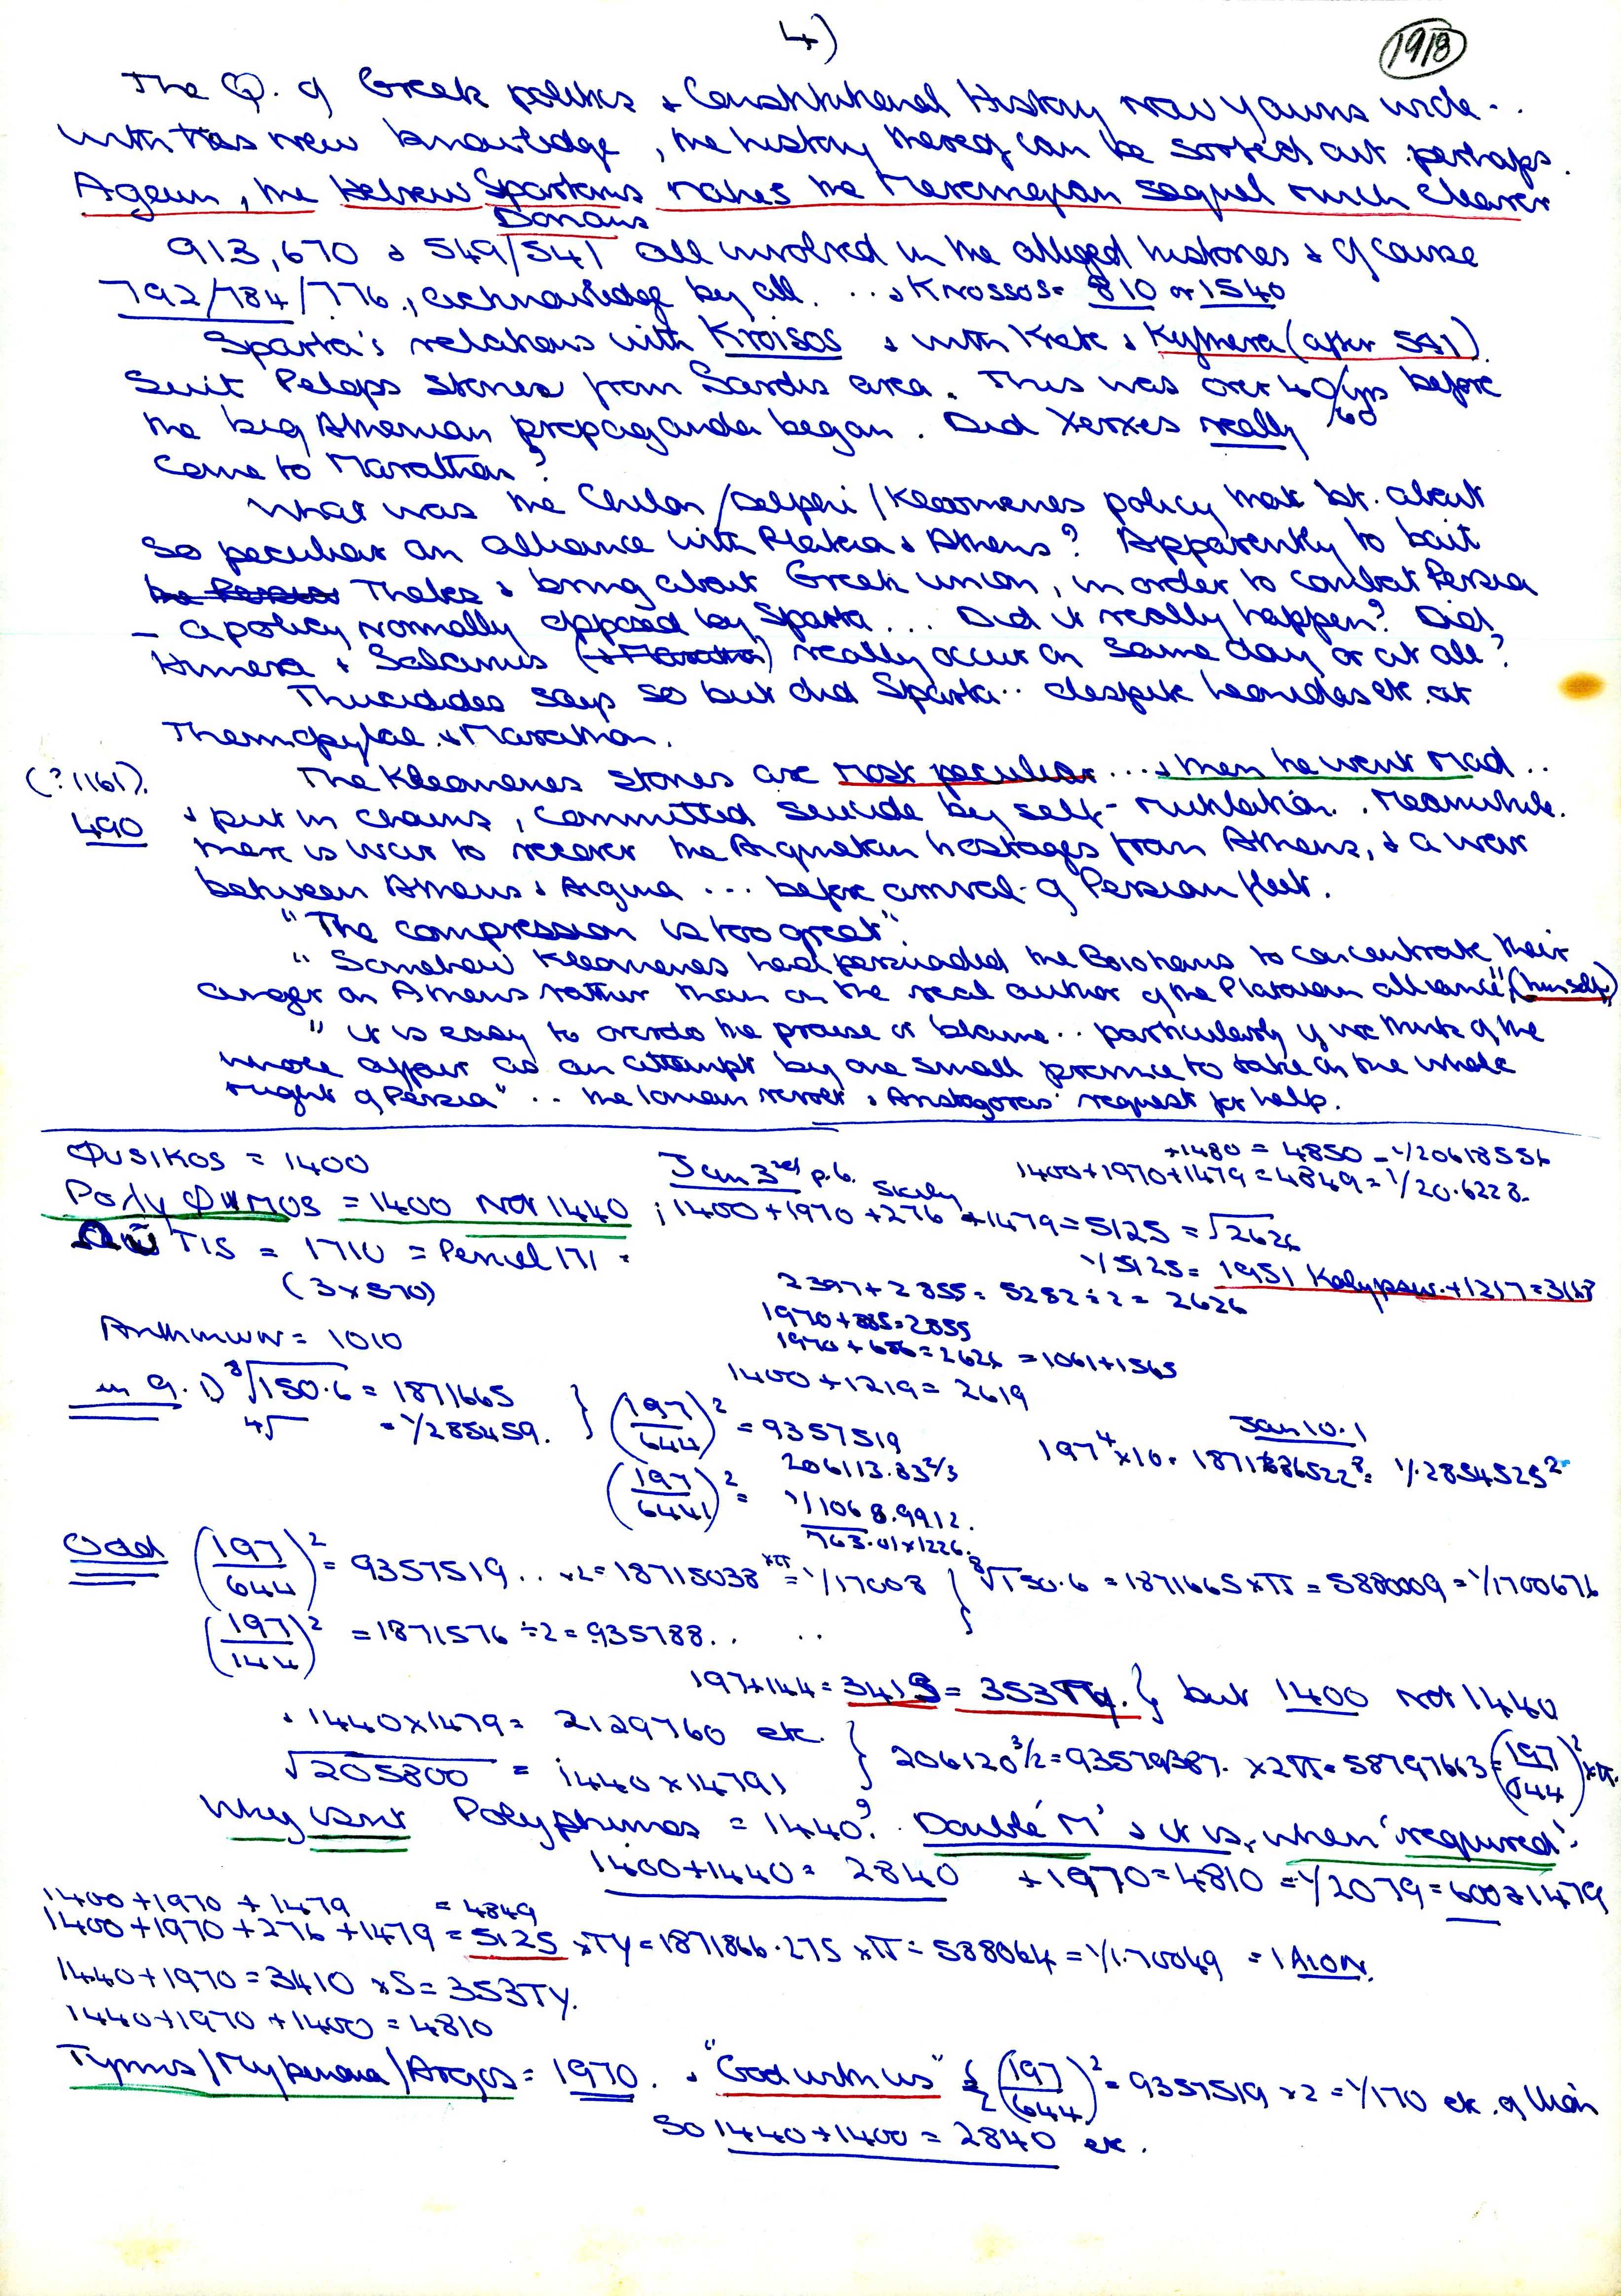 4)
1918
The Q. of Greek politics & Constitutional History now yawns wide..
with this new knowledge, the history thereof can be sorted out perhaps.
Again, the Hebrew Spartans makes the Merrnepan sequel much clearer
Dorians
913, 670 & 549/541 all involved in the alleged histories & of course
792/784/776, acknowledge by all. ...& Knossos = 810 or 1540
Sparta's relations with Kroisos & with Krete & Kythera (after 541)
Suit Pelops stories from Sardis area. This was over 40/yrs before
60
the big Athenian propaganda began. Did Xerxes really
come to Marathon?
What was the Chilon/Delphi/Kleomenes policy that bt. about
so peculiar an alliance with Plataia & Athens? Apparently to bait
Thebes & bring about Greek union, in order to combat Persia
- a policy normally opposed by Sparta... Did it really happen? Did
Himera & Salamis really occur on same day or at all?
Thucidides says so but did Sparta.. despite Leonidas etc. at
Thermopylae & Marathon.
(?1161).
The Kleomenes stories are most peculiar ...& then he went mad..
490
& put in chains, committed suicide by self-mutilation. Meanwhile.
there is war to recover the Aiginetan hostages from Athens, & a war
between Athens & Aigina ... before arrival of Persian fleet.
"The compression is too great".
"Somehow Kleomenes had persuaded the Boiotians to concentrate their
anger on Athens rather than on the real author of the Plataian alliance" (himself)
"it is easy to overdo the praise or blame.. particularly if we think of the
whole affair as an attempt by one small province to take on the whole
might of Persia" .. the Ionian revolt & Aristagoras' request for help.
Φusikos = 1400
+1480 = 4850 = 1/2061855k
Jan 3rd p.6. Sicily
1400+1970+1479=4849=1/20.6228
PolyΦhmos = 1400 not 1440 ; 1400+1970+276+1479=5125=√2626
TIS = 1710 = Peniel 171.
1/5125= 1951 Kalypsw.+1217=3168
(3x570)
2397+2855=5252÷2=2626
1970+885=2855
Arithmwn = 1010
1970+656=2626 =1061+1565
1400+1219=2619
in 9. 1) ⁸√150.6=1871665
4√ =1/285459.
(197/644)² = 9357519
206113.83⅔
Jan 10.1
197⁴x10=
(197/6441)² = 1/1068.9912.
763.01x1226.
Odd (197/644)² = 9357519.. x2=18715038 xπ=1/17008 } ⁸√150.6=1871665xπ=5880009=1/1700676
(197/144)² =1871576÷2=935788..
197+144=341S=353TY.} but 1400 not 1440
& 1440x1479= 2129760 etc.
√205800 = 1440x14791 } 206120^3/2=93579387. x2π=58797663=(197/644)²xπ.
Why isnt Polyphemos = 1440? Double 'M' & it is, when 'required'.
1400+1440= 2840 +1970=4810=1/2079=600+1479
1400+1970+1479 =4849
1400+1970+276+1479=5125xTY=1871866.275xπ=588064=1/170049 =1 AION.
1440+1970=3410xS=353TY.
1440+1970+1400=4810
Tyrins/Mykenana/Argos=1970. & "God with us" = (197/644)²=9357519x2=1/170 etc. of
So 1440+1400=2840 etc.